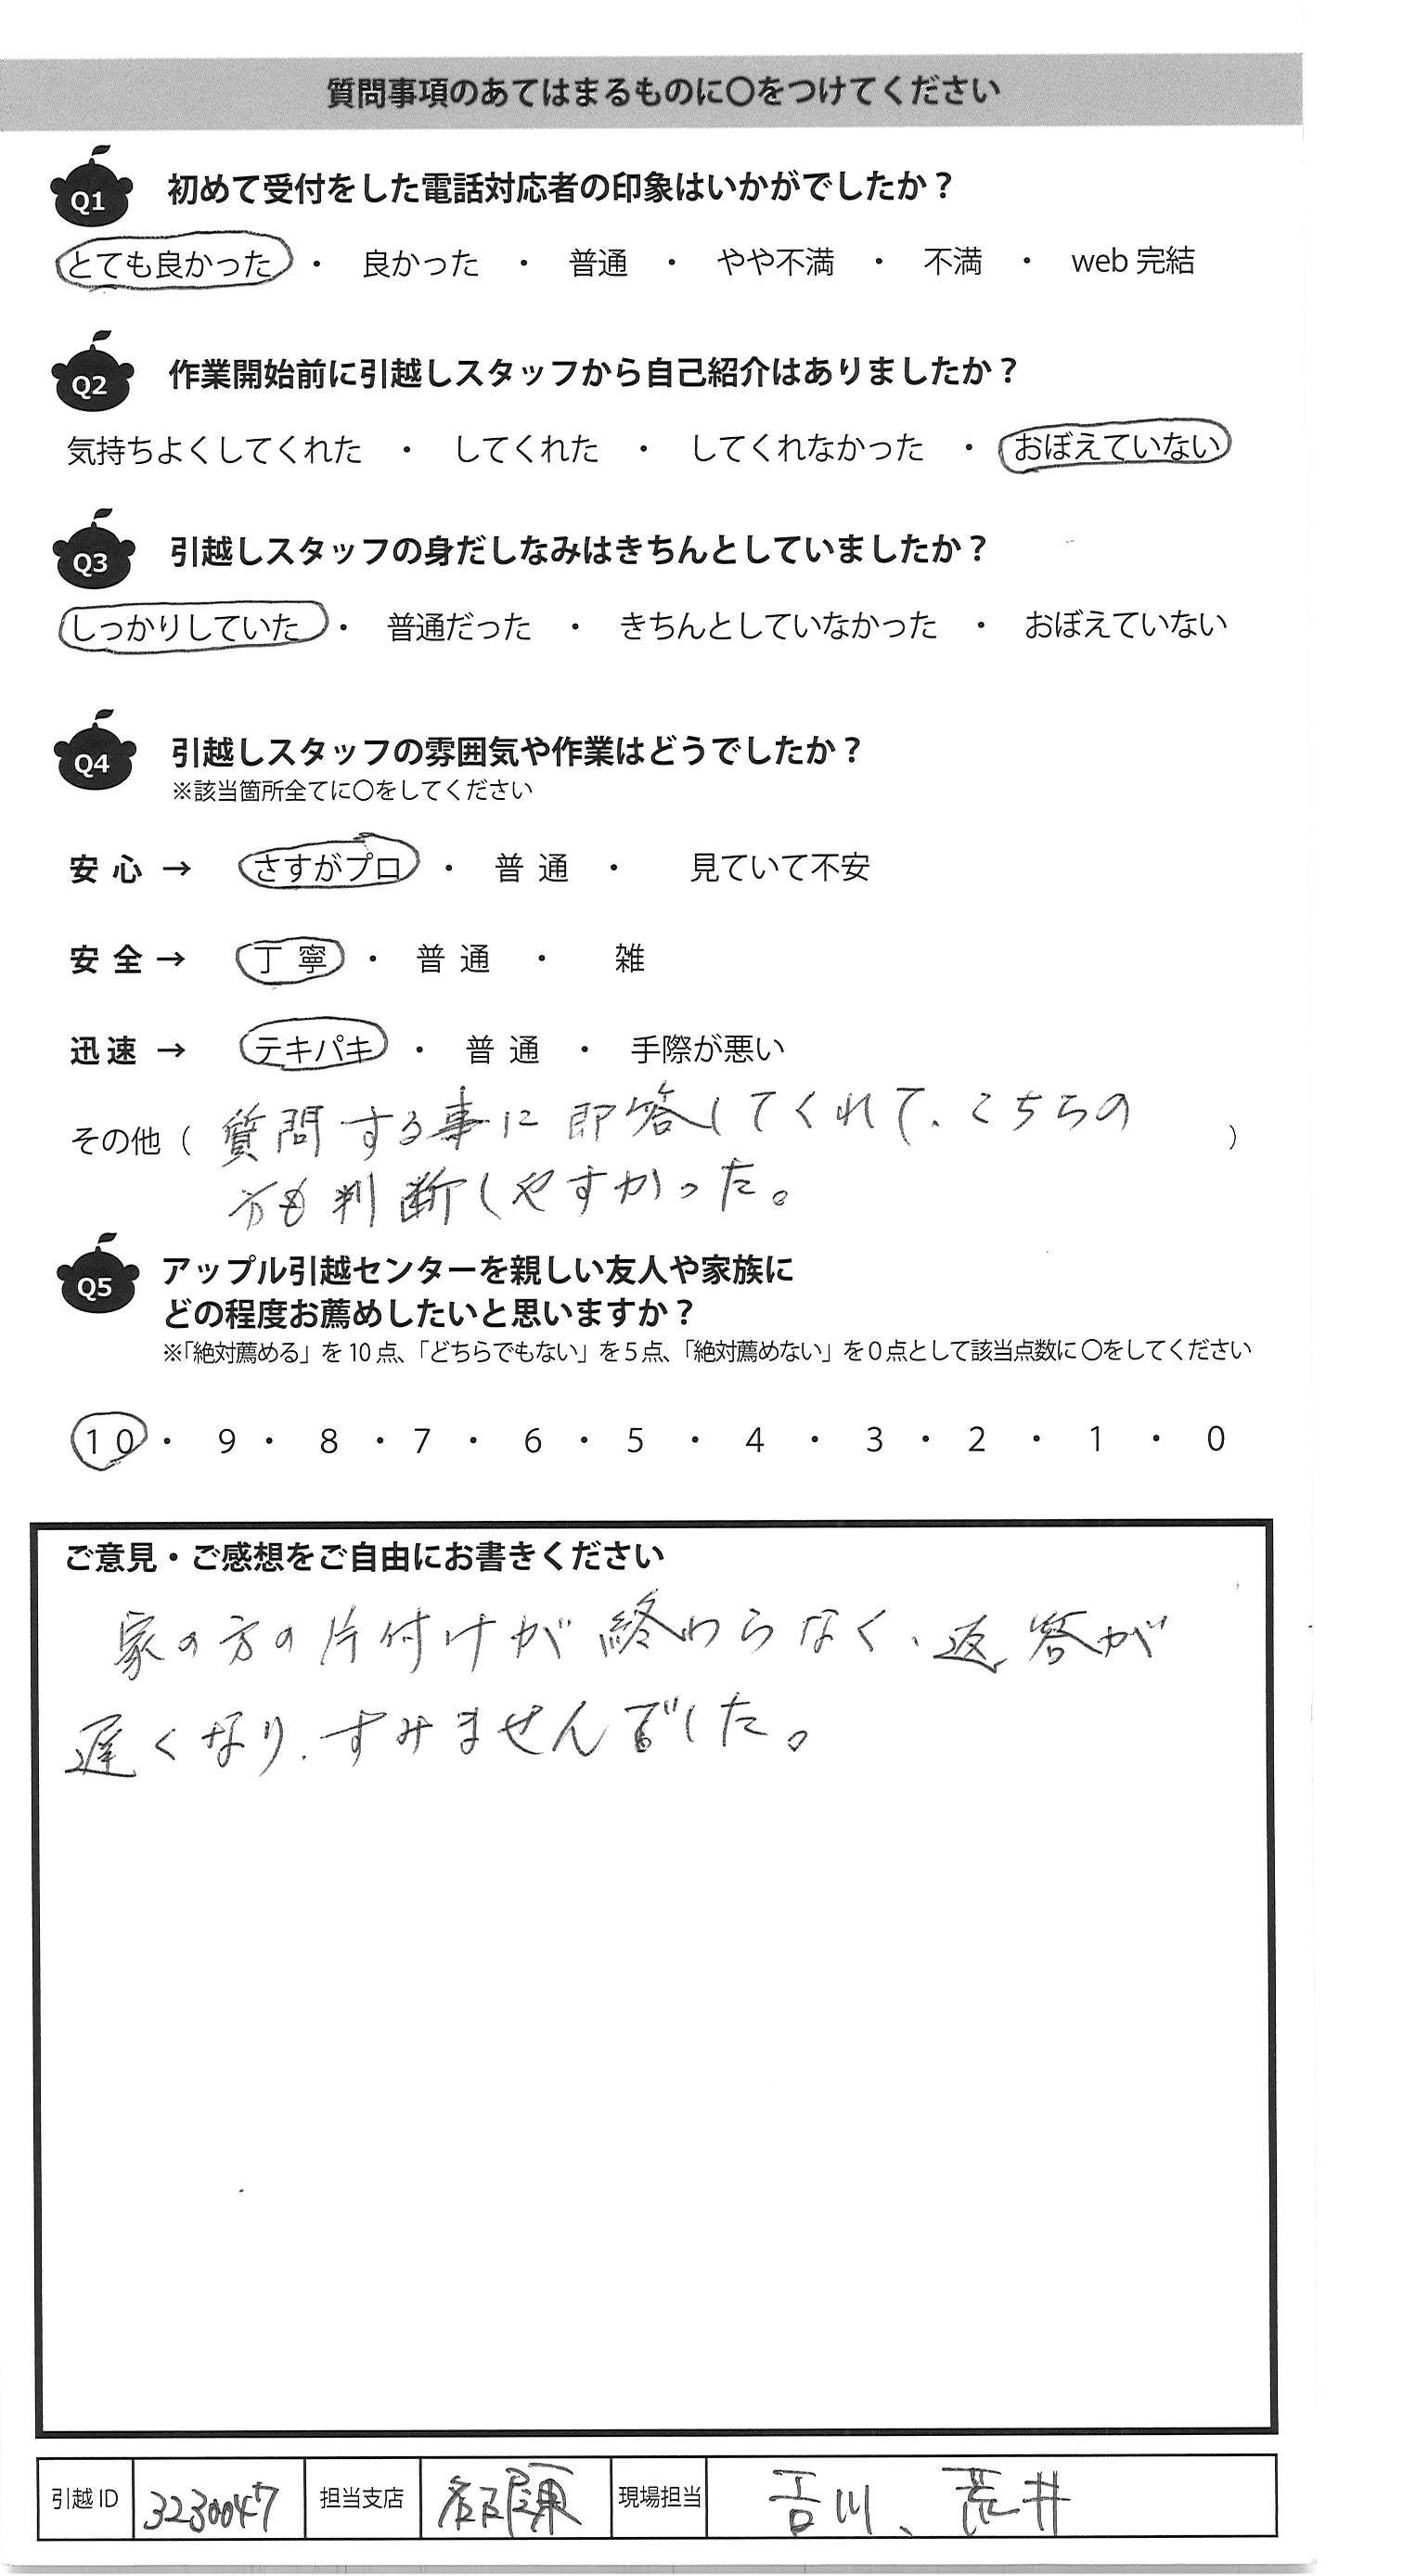 質問事項のあてはまるものに〇をつけてください
Q1 初めて受付をした電話対応者の印象はいかがでしたか？
とても良かった ・ 良かった ・ 普通 ・ やや不満 ・ 不満 ・ web 完結
Q2 作業開始前に引越しスタッフから自己紹介はありましたか？
気持ちよくしてくれた ・ してくれた ・ してくれなかった ・ おぼえていない
Q3 引越しスタッフの身だしなみはきちんとしていましたか？
しっかりしていた ・ 普通だった ・ きちんとしていなかった ・ おぼえていない
Q4 引越しスタッフの雰囲気や作業はどうでしたか？
※該当箇所全てに〇をしてください
安心 → さすがプロ ・ 普通 ・ 見ていて不安
安全 → 丁寧 ・ 普通 ・ 雑
迅速 → テキパキ ・ 普通 ・ 手際が悪い
その他（ 質問する事に即答してくれて、こちらの ）
方も判断しやすかった。
Q5 アップル引越センターを親しい友人や家族に
どの程度お薦めしたいと思いますか？
※「絶対薦める」を 10 点、「どちらでもない」を 5 点、「絶対薦めない」を 0 点として該当点数に 〇をしてください
10 ・ 9 ・ 8 ・ 7 ・ 6 ・ 5 ・ 4 ・ 3 ・ 2 ・ 1 ・ 0
ご意見・ご感想をご自由にお書きください
家の方の片付けが終わらなく、返答が
遅くなり、すみませんでした。
引越 ID 3230047 担当支店 現場担当 吉川、荒井